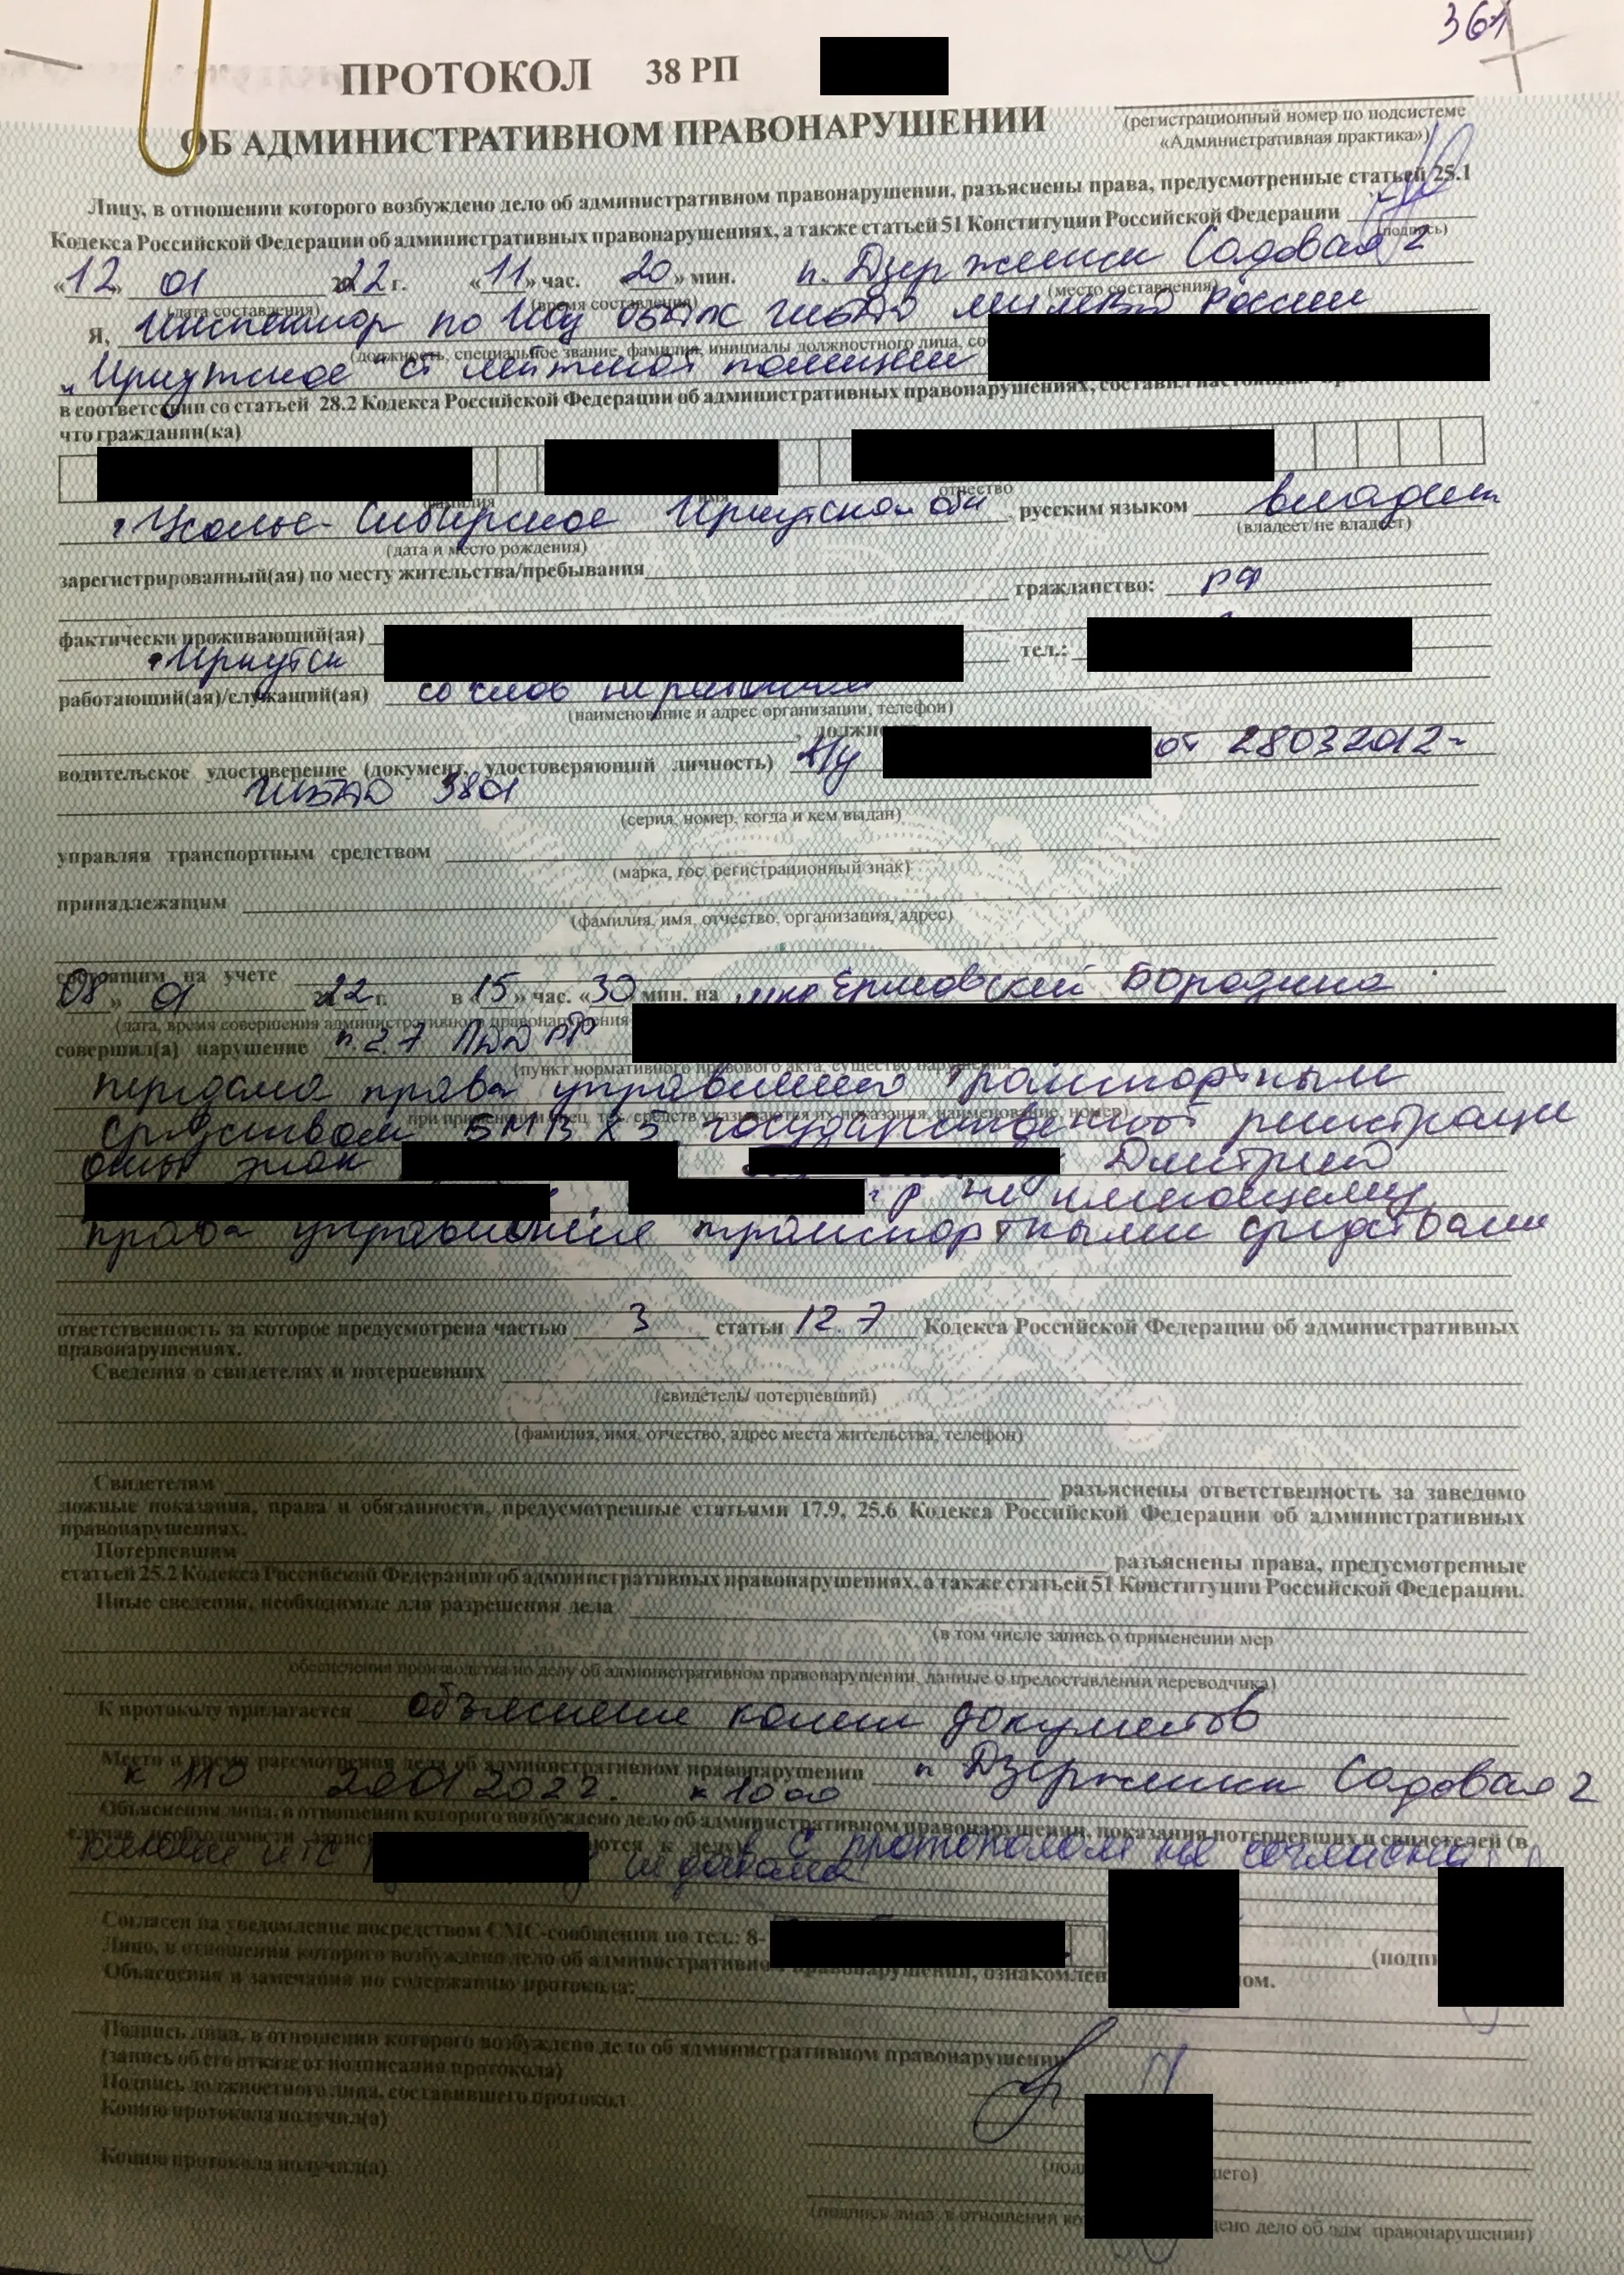 361
ПРОТОКОЛ 38 РП
ОБ АДМИНИСТРАТИВНОМ ПРАВОНАРУШЕНИИ
(регистрационный номер по подсистеме
«Административная практика»)
Лицу, в отношении которого возбуждено дело об административном правонарушении, разъяснены права, предусмотренные статьей 25.1
Кодекса Российской Федерации об административных правонарушениях, а также статьей 51 Конституции Российской Федерации
(подпись)
«12» 01 2022 г. «11» час. «20» мин. п. Дзержинск Садовая 2
(дата составления) (время составления) (место составления)
Я, Инспектор по ИАЗ ГИБДД России
(должность, специальное звание, фамилия, инициалы должностного лица, со
"Иркутское" ст лейтенант полиции
в соответствии со статьей 28.2 Кодекса Российской Федерации об административных правонарушениях, составил настоящий
что гражданин(ка)
фамилия имя отчество
Усолье-Сибирское Иркутской обл русским языком владеет
(дата и место рождения) (владеет/не владеет)
зарегистрированный(ая) по месту жительства/пребывания
гражданство: РФ
фактически проживающий(ая)
Иркутск тел.:
работающий(ая)/служащий(ая) со слов не работает
(наименование и адрес организации, телефон)
, должн
водительское удостоверение (документ, удостоверяющий личность) от 28032012
ГИБДД 3801
(серия, номер, когда и кем выдан)
управляя транспортным средством
(марка, гос. регистрационный знак)
принадлежащим
(фамилия, имя, отчество, организация, адрес)
состоящим на учете
08» 01 2022 г. в «15» час. «30 мин. на мкр Ермовский Бородина
(дата, время совершения административного правонарушения
совершил(а) нарушение п. 2.7 ПДД РФ
(пункт нормативного правового акта, существо нарушения
передала права управления транспортным
при применении спец. тех. средств указываются их показания, наименование, номер)
средством БМВ Х5 государственной регистраци
онный знак Дмитрий
г р не имеющему
права управления транспортными средствами
ответственность за которое предусмотрена частью 3 статьи 12.7 Кодекса Российской Федерации об административных
правонарушениях.
Сведения о свидетелях и потерпевших
(свидетель/ потерпевший)
(фамилия, имя, отчество, адрес места жительства, телефон)
Свидетелям разъяснены ответственность за заведомо
ложные показания, права и обязанности, предусмотренные статьями 17.9, 25.6 Кодекса Российской Федерации об административных
правонарушениях.
Потерпевшим разъяснены права, предусмотренные
статьей 25.2 Кодекса Российской Федерации об административных правонарушениях, а также статьей 51 Конституции Российской Федерации.
Иные сведения, необходимые для разрешения дела
(в том числе запись о применении мер
обеспечения производства по делу об административном правонарушении, данные о предоставлении переводчика)
К протоколу прилагается объяснение копии документов
Место и время рассмотрения дела об административном правонарушении п Дзержинск Садовая 2
к 110 20012022г. к 1000
Объяснения лица, в отношении которого возбуждено дело об административном правонарушении, показания потерпевших и свидетелей (в
случае необходимости запис аются к делу) С протоколом не согласна
ключи от ТС не давала
Согласен на уведомление посредством СМС-сообщения по тел.: 8-
Лицо, в отношении которого возбуждено дело об административном правонарушении, ознакомлен ом. (подпи
Объяснения и замечания по содержанию протокола:
Подпись лица, в отношении которого возбуждено дело об административном правонарушении
(запись об его отказе от подписания протокола)
Подпись должностного лица, составившего протокол
Копию протокола получил(а)
(под шего)
Копию протокола получил(а)
(подпись лица, в отношении ко дено дело об адм. правонарушении)